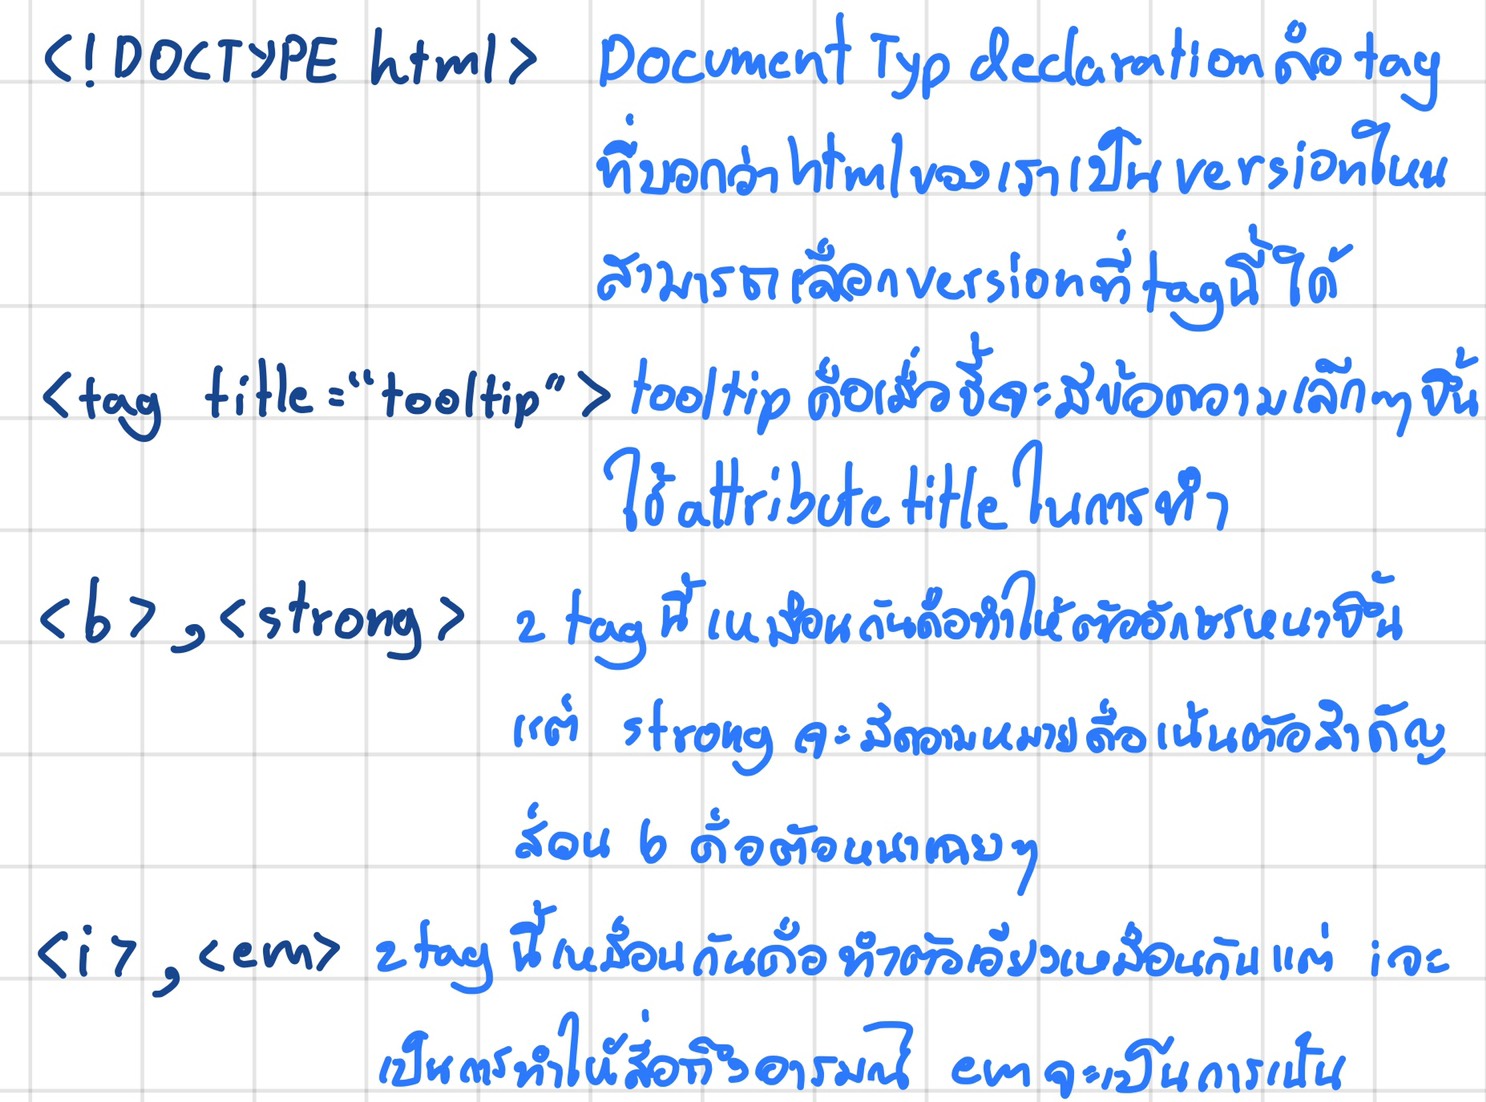 <!DOCTYPE html> Document Typ declaration คือ tag
ที่บอกว่า html ของเราเป็น version ไหน
สามารถเลือก version ที่ tag นี้ ได้
<tag title="tooltip"> tooltip คือเมื่อชี้จะมีข้อความเล็กๆ ขึ้น
ใช้ attribute title ในการทำ
<b>, <strong> 2 tag นี้ เหมือนกันคือทำให้ตัวอักษรหนาขึ้น
แต่ strong จะมีความหมายคือเน้นตัวสำคัญ
ส่วน b คือตัวหนาเฉยๆ
<i>, <em> 2 tag นี้เหมือนกันคือ ทำตัวเอียงเหมือนกัน แต่ i จะ
เป็นการทำให้สื่อถึงอารมณ์ em จะเป็นการเน้น